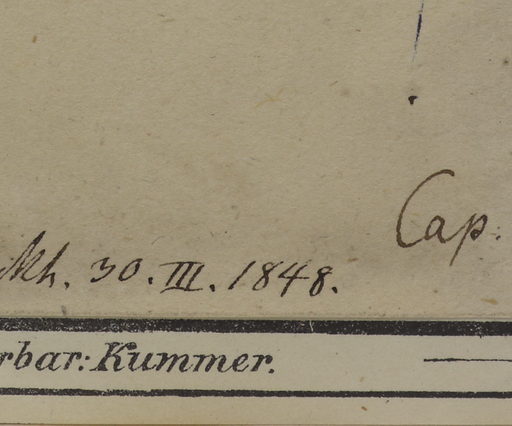 Cap.
Mh. 30. III. 1848.
rbar: Kummer.